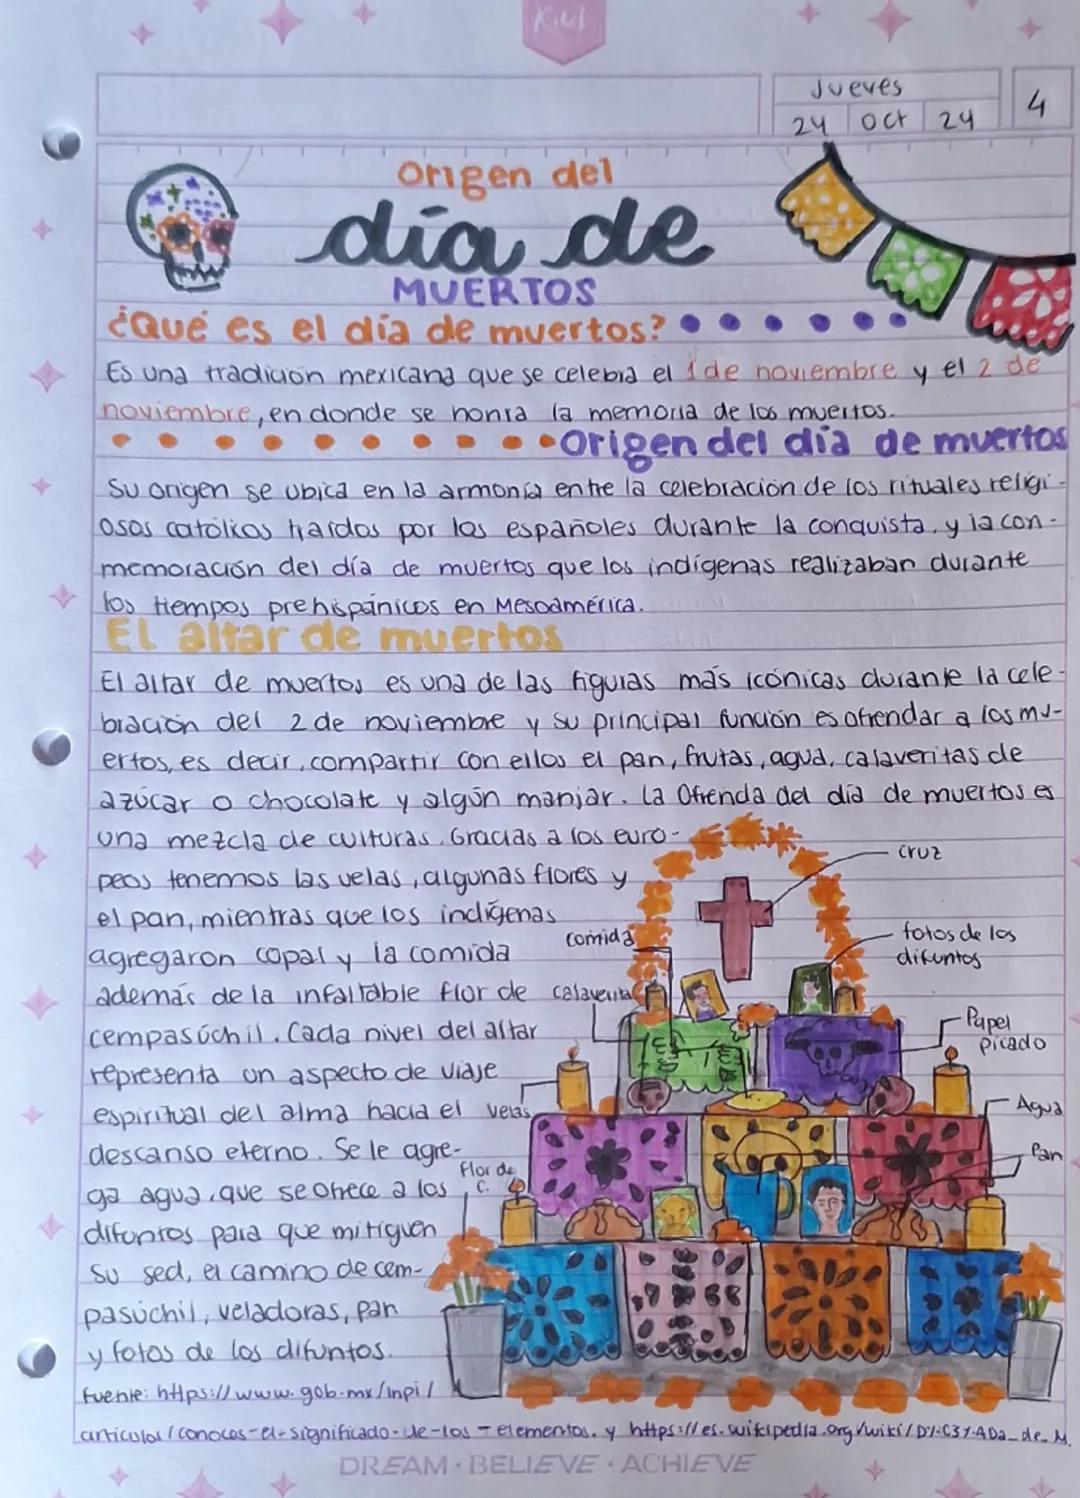 Kiut
Jueves
24 Oct 24
4
Origen del
día de
MUERTOS
¿Qué es el día de muertos?
Es una tradición mexicana que se celebra el 1 de noviembre y el 2 de
noviembre, en donde se honra la memoria de los muertos.
Origen del día de muertos
Su origen se ubica en la armonía entre la celebración de los rituales religi-
osos católicos traídos por los españoles durante la conquista y la con-
memoración del día de muertos que los indígenas realizaban durante
los tiempos prehispánicos en Mesoamérica.
El altar de muertos
El altar de muertos es una de las figuras más icónicas durante la cele-
bración del 2 de noviembre y su principal función es ofrendar a los mu-
ertos, es decir, compartir con ellos el pan, frutas, agua, calaveritas de
azúcar o chocolate y algún manjar. La Ofrenda del día de muertos es
una mezcla de culturas. Gracias a los euro-
peos tenemos las velas, algunas flores y
el pan, mientras que los indígenas
agregaron copal y la comida
además de la infaltable flor de
cempasúchil. Cada nivel del altar
representa un aspecto de viaje
espiritual del alma hacia el
descanso eterno. Se le agre-
ga agua, que se ofrece a los
difuntos para que mitiguen
su sed, el camino de cem-
pasúchil, veladoras, pan
y fotos de los difuntos.
cruz
comida
fotos de los
difuntos
calaverita
Papel
picado
velas
Agua
Pan
Flor de
C.
Fuente: https://www.gob.mx/inpi/
articulos/conoces-el-significado-de-los-elementos. y https://es.wikipedia.org/wiki/D%C3%ADa_de_M.
DREAM · BELIEVE · ACHIEVE